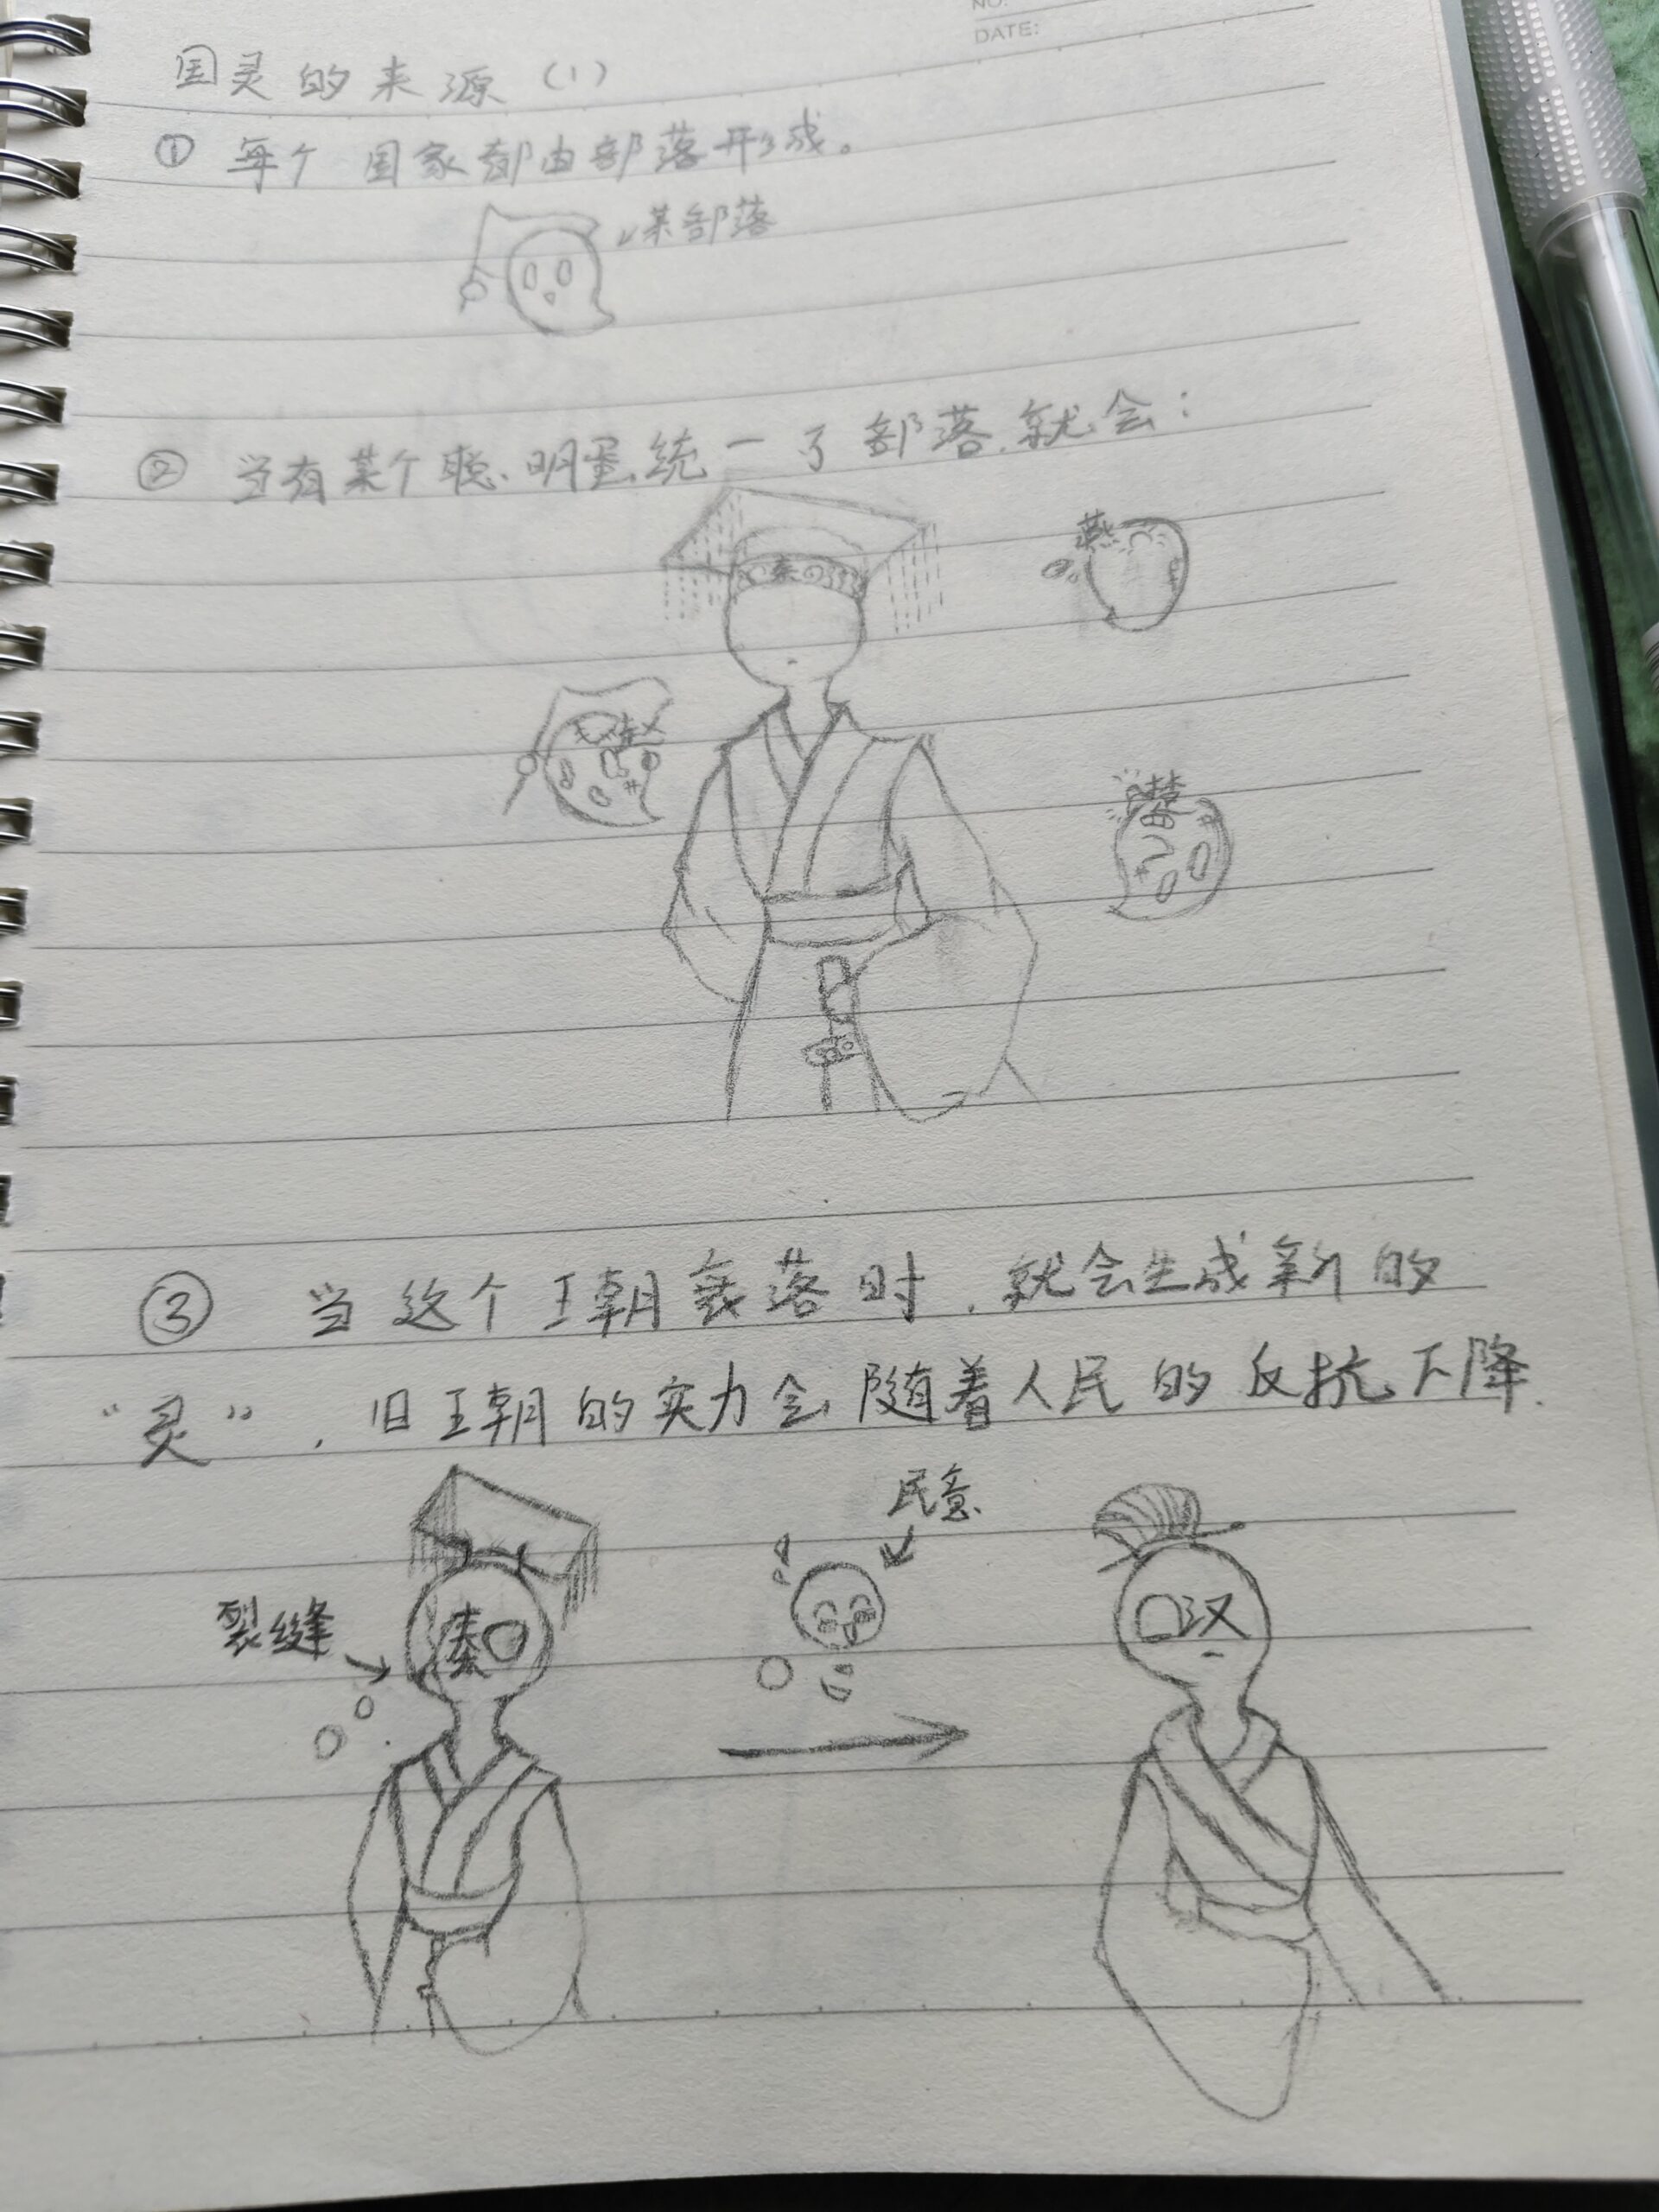 NO.
DATE:
国灵的来源(1)
① 每个国家都由部落形成。
某部落
② 当有某个聪明蛋统一了部落,就会:
燕
秦
赵
楚
③ 当这个王朝衰落时,就会生成新的
“灵”,旧王朝的实力会随着人民的反抗下降.
民意
裂缝
秦
汉